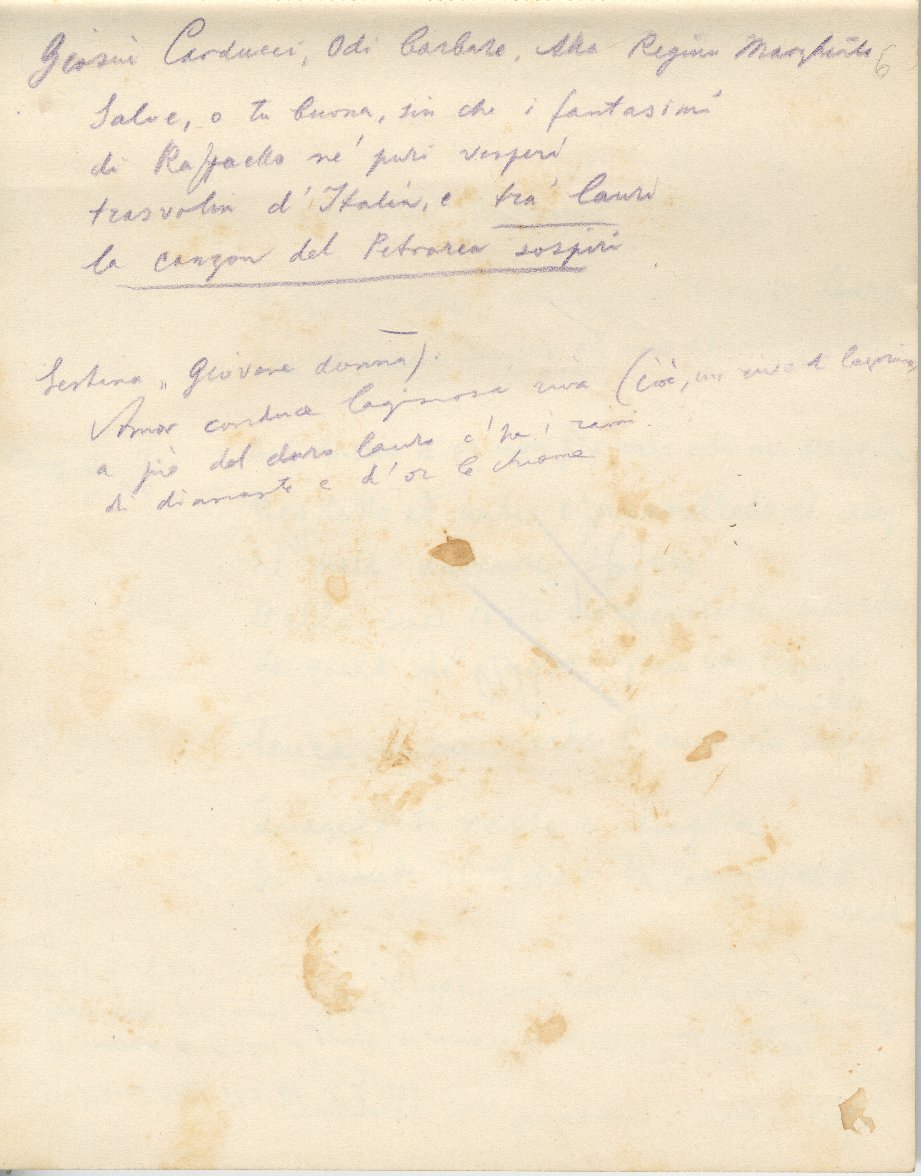 Giosuè Carducci, Odi barbare, Alla Regina Margherita 6
Salve, o tu buona, sin che i fantasimi
di Raffaello ne' puri vesperi
trasvolin d'Italia, e tra' lauri
la canzon del Petrarca sospiri
Sestina „ Giovane donna).
Amor conduce lagrimosa riva (cioè, un riva di lagrime
a piè del duro lauro c'ha i rami
di diamante e d'or le chiome